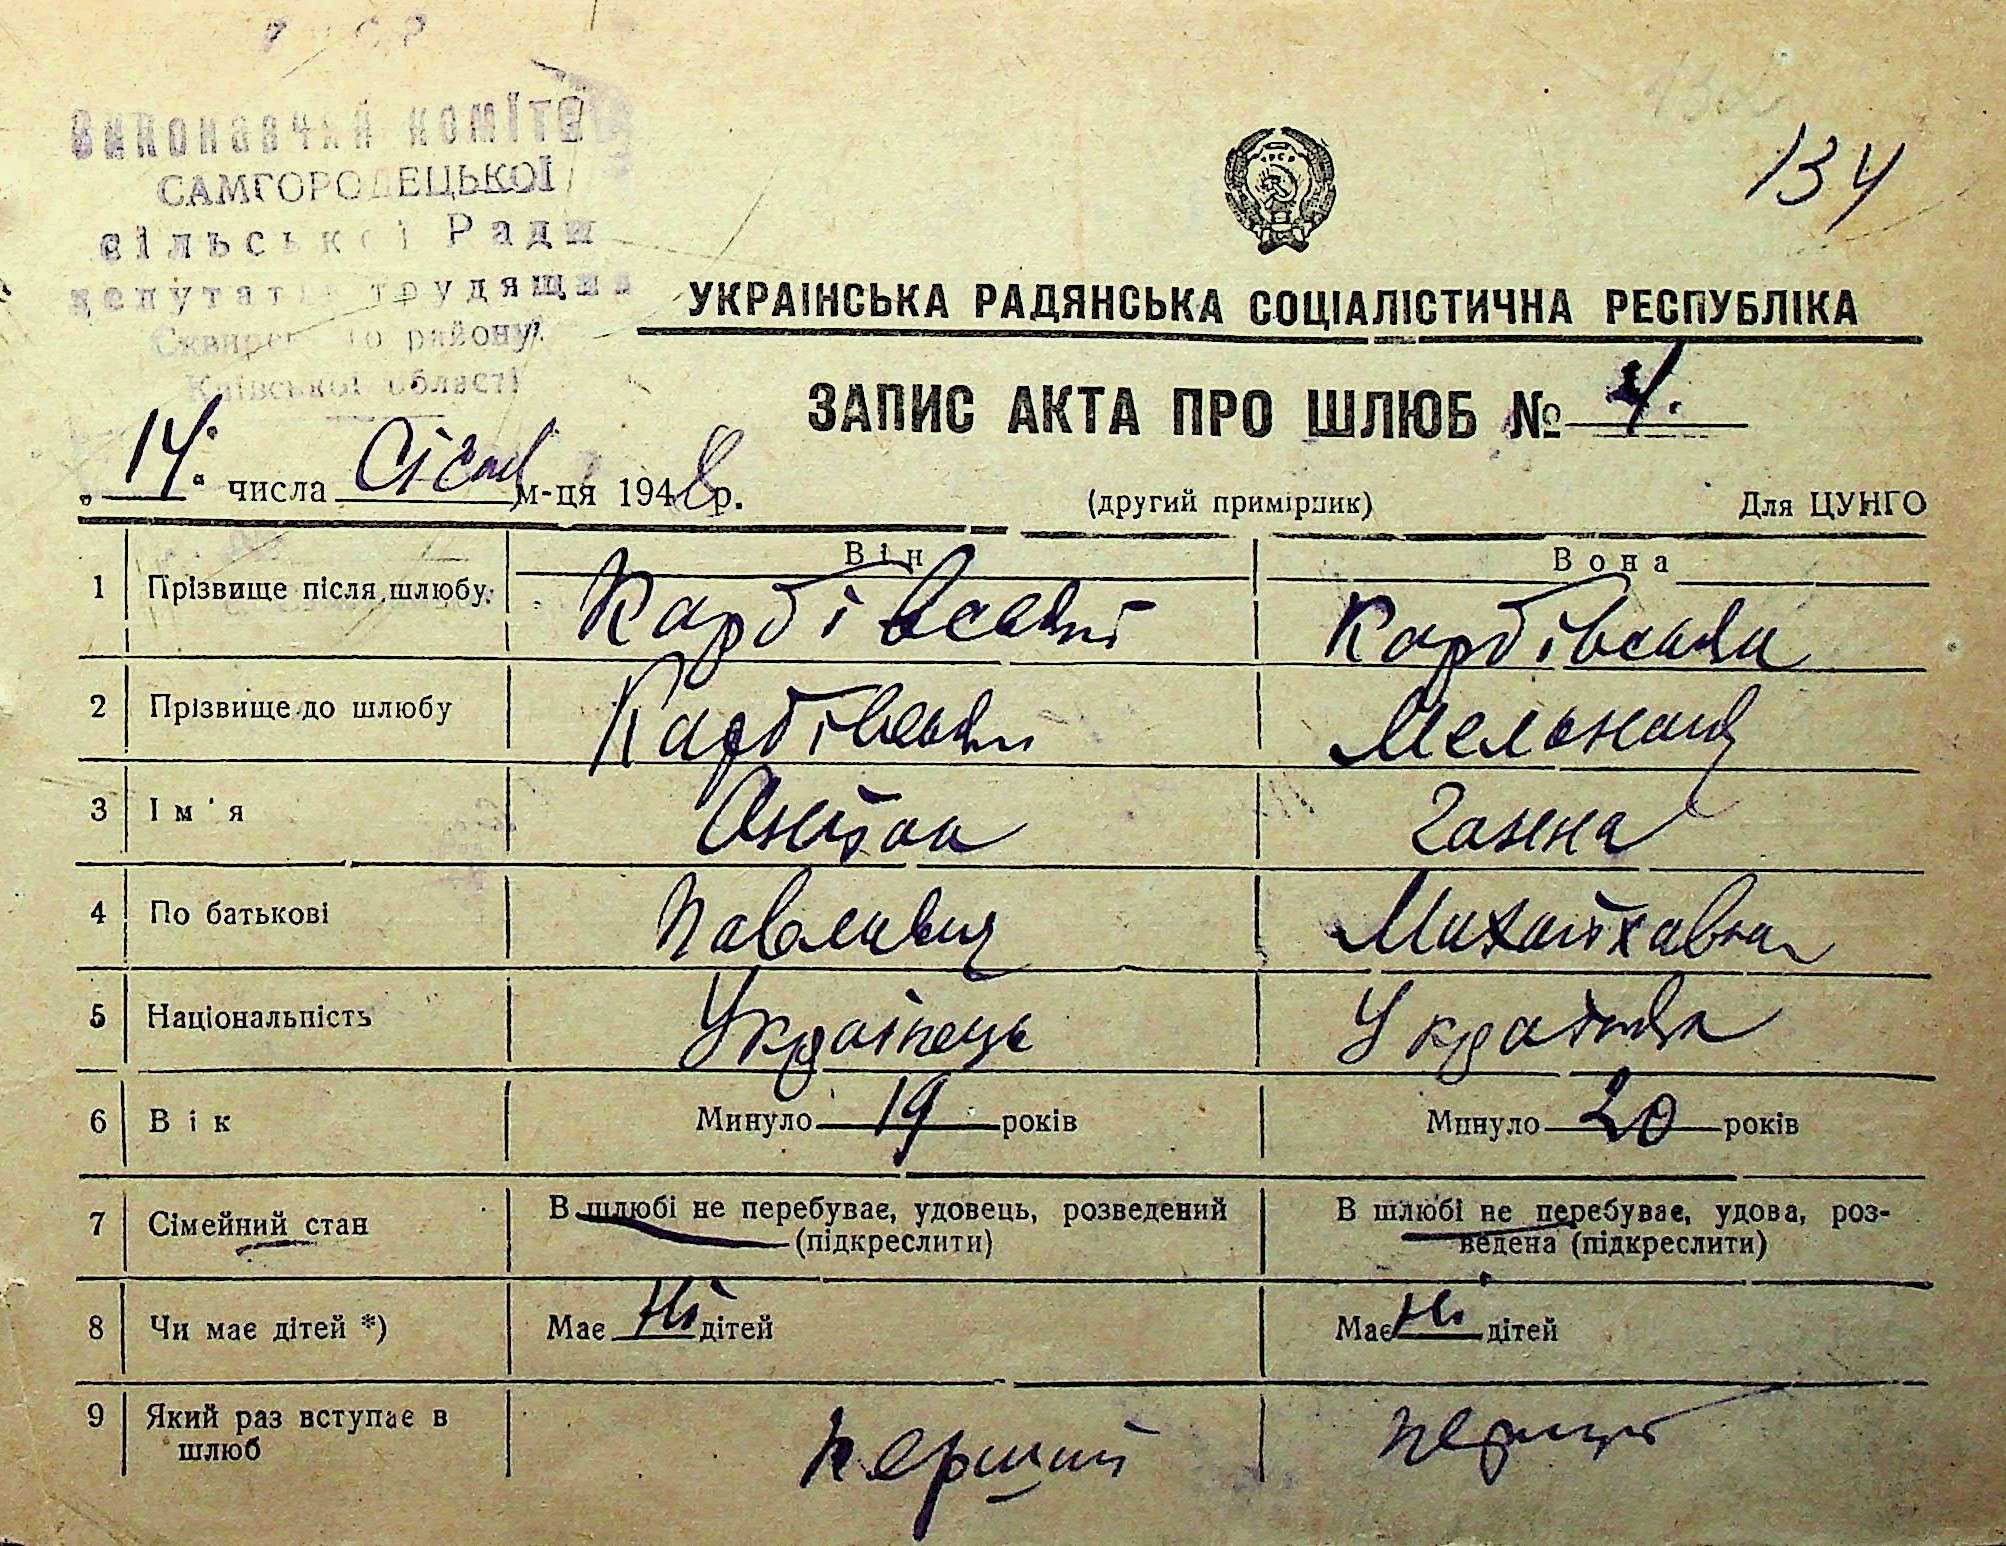 Виконавчий коміте
САМГОРОДЕЦЬКОЇ
сільської Ради
депутатів трудящих
Сквирського району
Київської області
134
УКРАІНСЬКА РАДЯНСЬКА СОЦІАЛІСТИЧНА РЕСПУБЛІКА
ЗАПИС АКТА ПРО ШЛЮБ № 4.
„14“ числа Січня м-ця 1948 р.
(другий примірник) Для ЦУНГО
Він Вона
1 Прізвище після шлюбу Карбівський Карбівська
2 Прізвище до шлюбу Карбівський Мельник
3 Ім'я Антон Ганна
4 По батькові Павлович Михайловна
5 Національність Українець Українка
6 Вік Минуло 19 років Минуло 20 років
7 Сімейний стан В шлюбі не перебуває, удовець, розведений В шлюбі не перебуває, удова, роз-
(підкреслити) ведена (підкреслити)
8 Чи має дітей *) Має Ні дітей Має Ні дітей
9 Який раз вступає в
шлюб перший перший